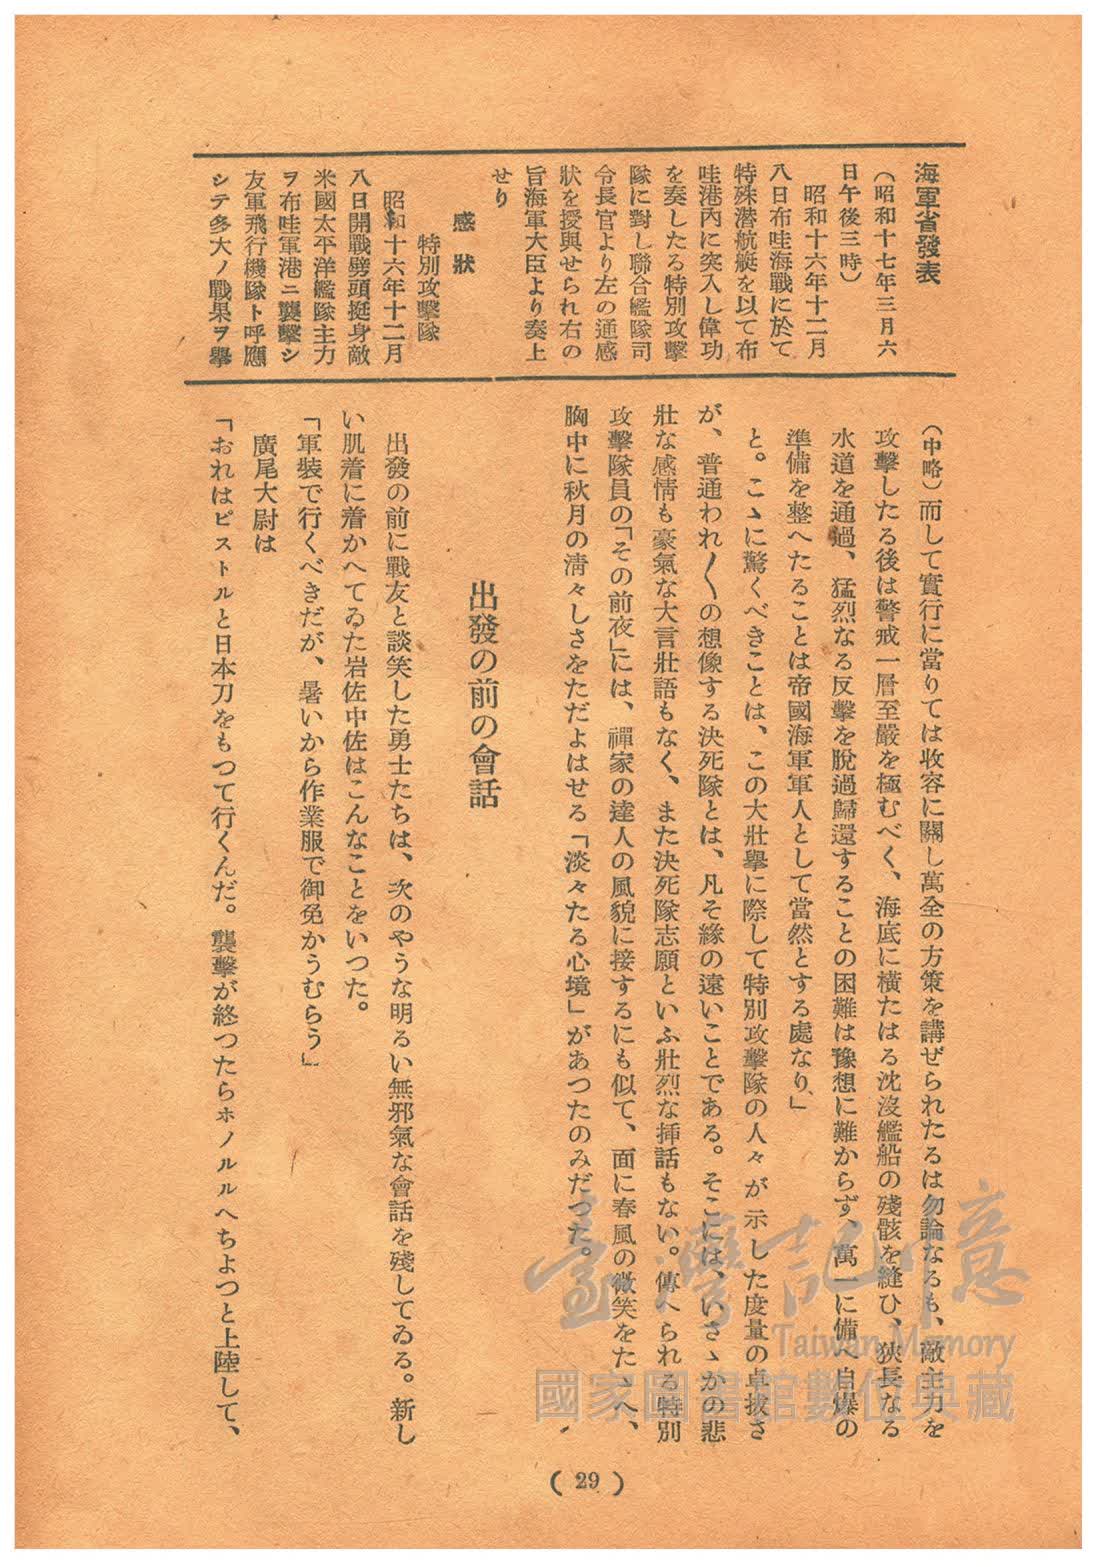 海軍省發表
（昭和十七年三月六
日午後三時）
昭和十六年十二月
八日布哇海戰に於て
特殊潜航艇を以て布
哇港內に突入し偉功
を奏したる特別攻擊
隊に對し聯合艦隊司
令長官より左の通感
狀を授與せられ右の
旨海軍大臣より奏上
せり
感狀
特別攻擊隊
昭和十六年十二月
八日開戰劈頭挺身敵
米國太平洋艦隊主力
ヲ布哇軍港ニ襲擊シ
友軍飛行機隊ト呼應
シテ多大ノ戰果ヲ擧
（中略）而して實行に當りては收容に關し萬全の方策を講ぜられたるは勿論なるも、敵主力を
攻擊したる後は警戒一層至嚴を極むべく、海底に橫たはる沈沒艦船の殘骸を縫ひ、狹長なる
水道を通過、猛烈なる反擊を脫過歸還することの困難は豫想に難からず、萬一に備へ自爆の
準備を整へたることは帝國海軍軍人として當然とする處なり、」
と。こゝに驚くべきことは、この大壯擧に際して特別攻擊隊の人々が示した度量の卓拔さ
が、普通われ〳〵の想像する決死隊とは、凡そ緣の遠いことである。そこには、いさゝかの悲
壯な感情も豪氣な大言壯語もなく、また決死隊志願といふ壯烈な挿話もない。傳へられる特別
攻擊隊員の「その前夜」には、禪家の達人の風貌に接するにも似て、面に春風の微笑をたゝへ、
胸中に秋月の淸々しさをただよはせる「淡々たる心境」があつたのみだつた。
出發の前の會話
出發の前に戰友と談笑した勇士たちは、次のやうな明るい無邪氣な會話を殘してゐる。新し
い肌着に着かへてゐた岩佐中佐はこんなことをいつた。
「軍裝で行くべきだが、暑いから作業服で御免かうむらう」
廣尾大尉は
「おれはピストルと日本刀をもつて行くんだ。襲擊が終つたらホノルルへちよつと上陸して、
(29)
臺灣記憶
Taiwan Memory
國家圖書館數位典藏